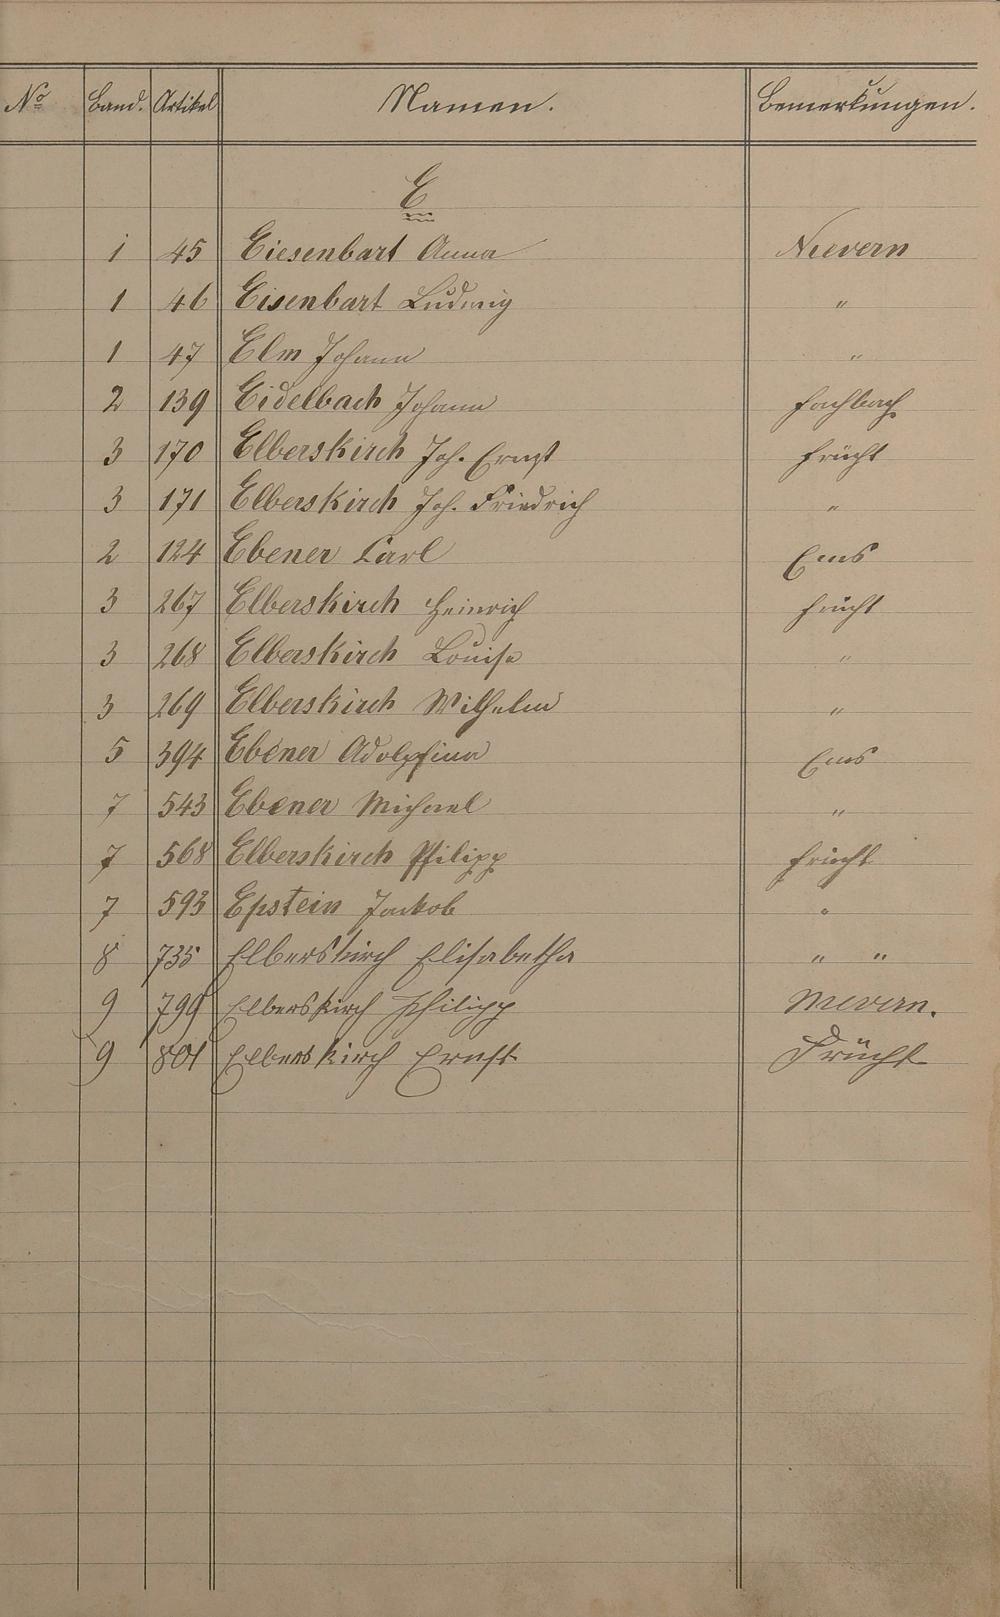 No Band. Artikel Namen. Bemerkungen.
E
1 45 Eiesenbart Anna Nievern
1 46 Eisenbart Ludwig "
1 47 Elm Johann "
2 139 Eidelbach Johann Fachbach
3 170 Elberskirch Joh. Ernst Frücht
3 171 Elberskirch Joh. Friedrich "
2 124 Ebener Carl Ems
3 267 Elberskirch Heinrich Frücht
3 268 Elberskirch Louise "
3 269 Elberskirch Wilhelm "
5 394 Ebener Adolphina Ems
7 543 Ebener Michael "
7 568 Elberskirch Philipp Frücht
7 593 Epstein Jackob "
8 735 Elberskirch Elisabetha " "
9 799 Elberskirch Philipp Nievern.
9 801 Elberskirch Ernst Frücht